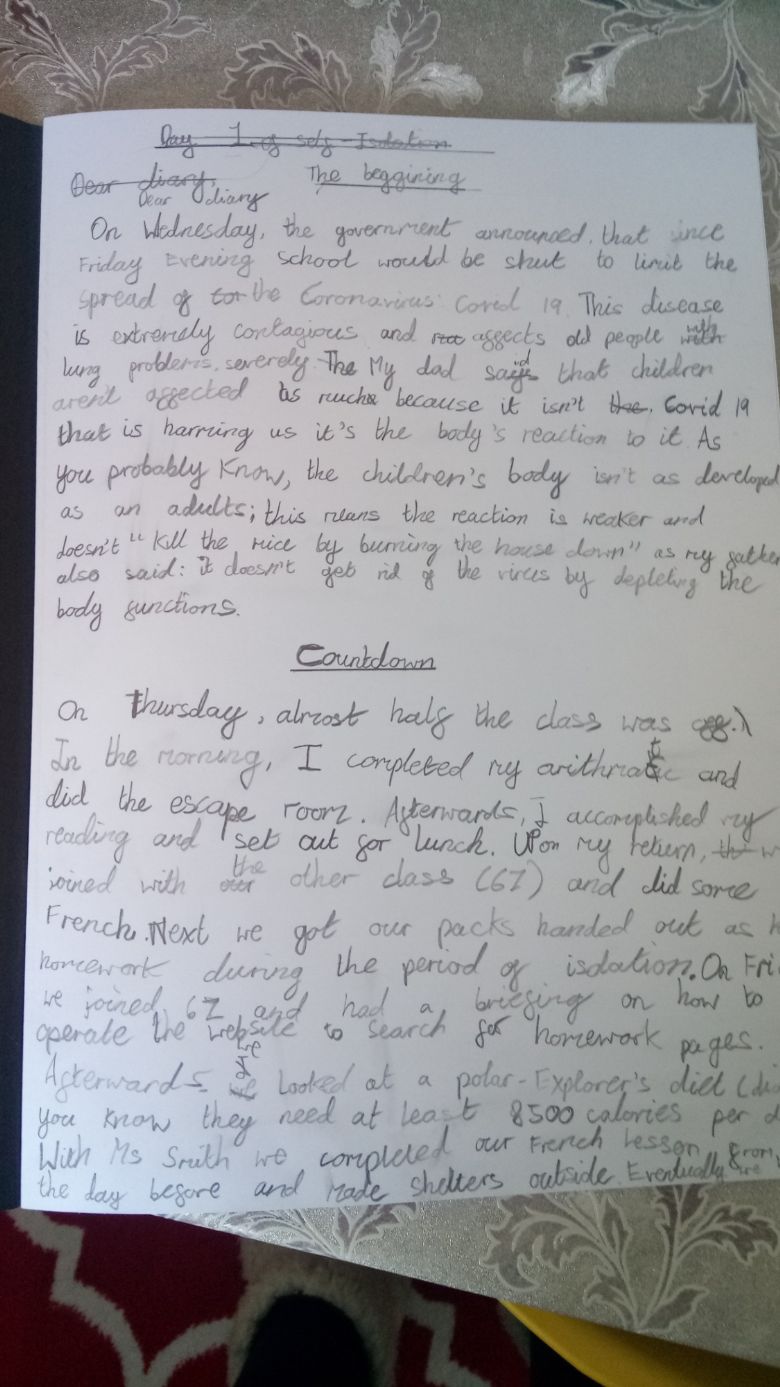 Day 1 of self-Isolation
Dear diary,
The beggining
Dear diary
On Wednesday, the government announced, that since
Friday Evening school would be shut to limit the
spread of for the Coronavirus: Covid 19. This disease
is extremely contagious and affects old people with
lung problems, severely. The My dad said that children
aren't affected as much because it isn't the Covid 19
that is harming us it's the body's reaction to it. As
you probably know, the children's body isn't as developed
as an adults; this means the reaction is weaker and
doesn't "kill the mice by burning the house down" as my father
also said: it doesn't get rid of the virus by depleting the
body functions.
Countdown
On Thursday, almost half the class was off.
In the morning, I completed my arithmatic and
did the escape room. Afterwards, I accomplished my
reading and set out for lunch. Upon my return,
joined with the other class (6Z) and did some
French. Next we got our packs handed out as
homework during the period of isolation. On Fri
we joined 6Z and had a briefing on how to
operate the website to search for homework pages.
Afterwards we looked at a polar-Explorer's diet (di
you know they need at least 8500 calories per d
With Ms Smith we completed our French lesson from
the day before and made shelters outside. Eventually we